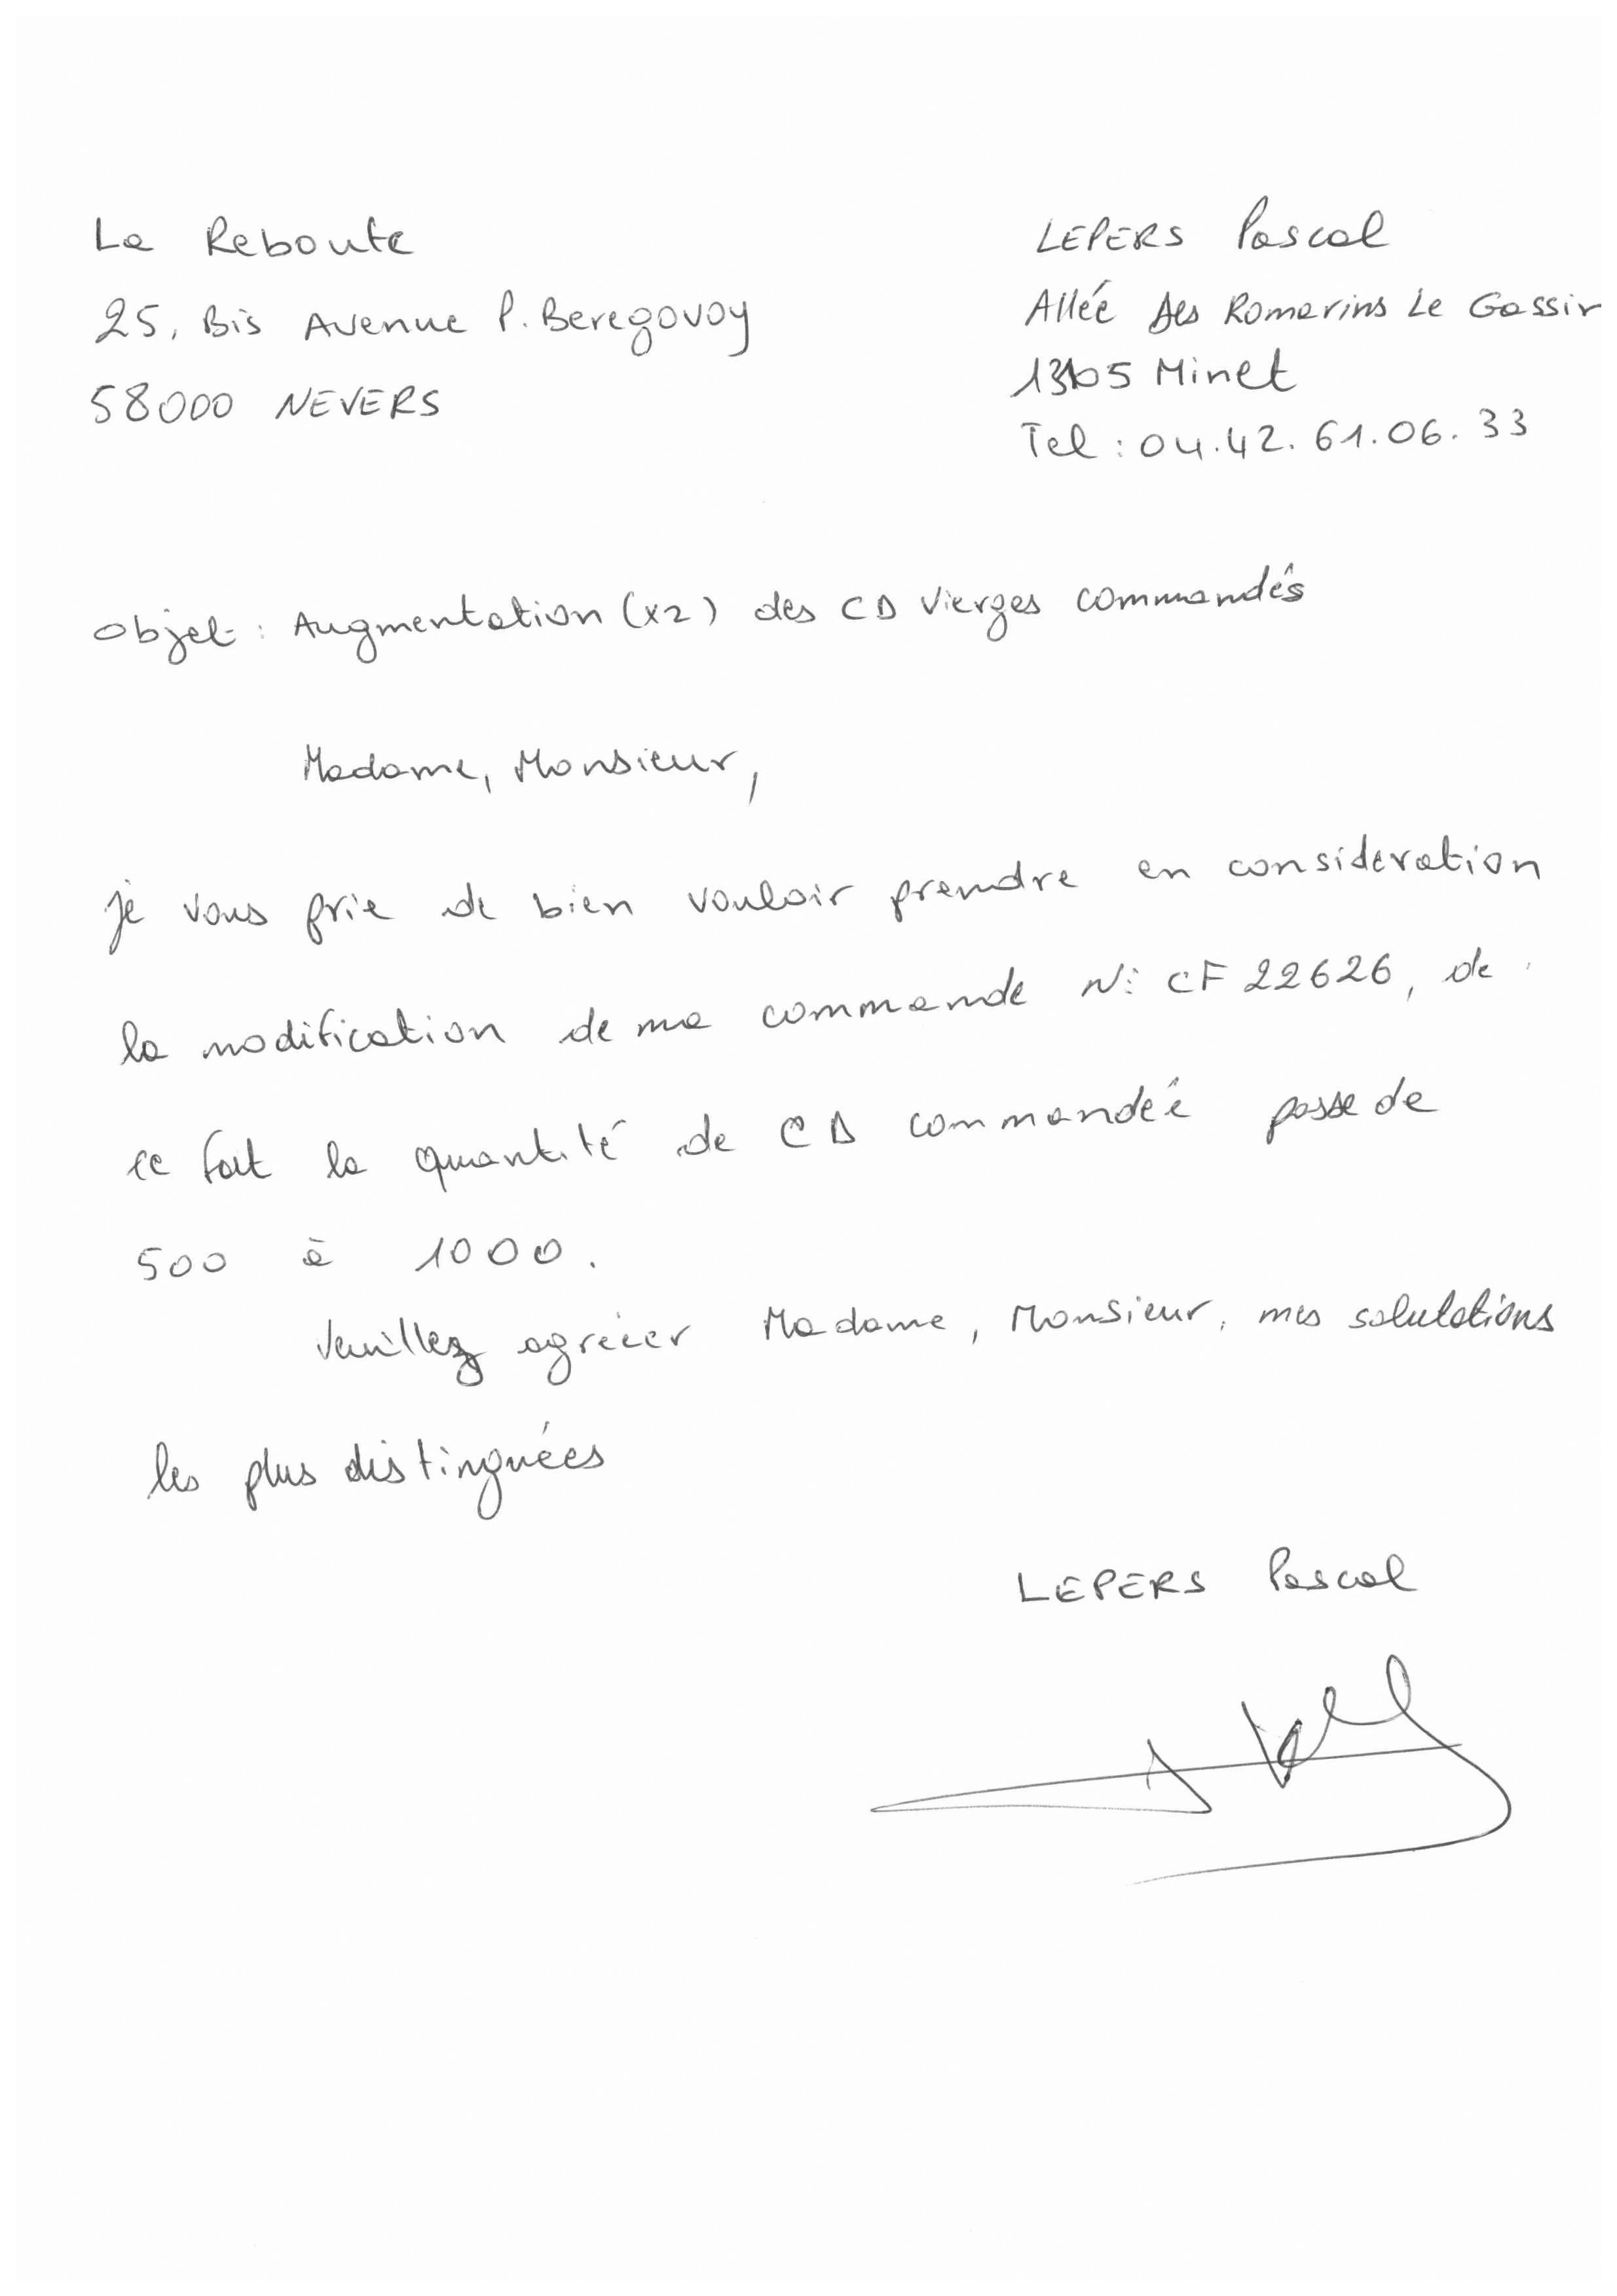 La Reboute
25, Bis Avenue P. Beregovoy
58000 NEVERS
LEPERS Pascal
Allée des Romarins Le Gassir
13105 Mimet
Tel : 04.42.61.06.33
Objet : Augmentation (x2) des CD Vierges commandés
Madame, Monsieur,
je vous prie de bien vouloir prendre en consideration
la modification de ma commande N: CF 22626, de
ce fait la quantité de CD commandée passe de
500 à 1000.
Veuillez agréer Madame, Monsieur, mes salutations
les plus distinguées
LEPERS Pascal